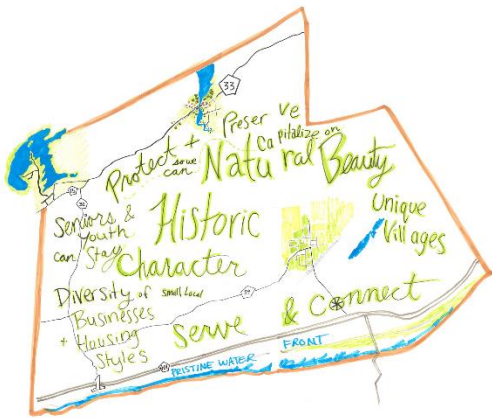 33
Preserve
Capitalize on
Protect + so we can
Natural Beauty
Seniors & Youth
can Stay
Historic
Character
Unique
Villages
Diversity of small local
Businesses
+ Housing
Styles
Serve & Connect
PRISTINE WATER FRONT